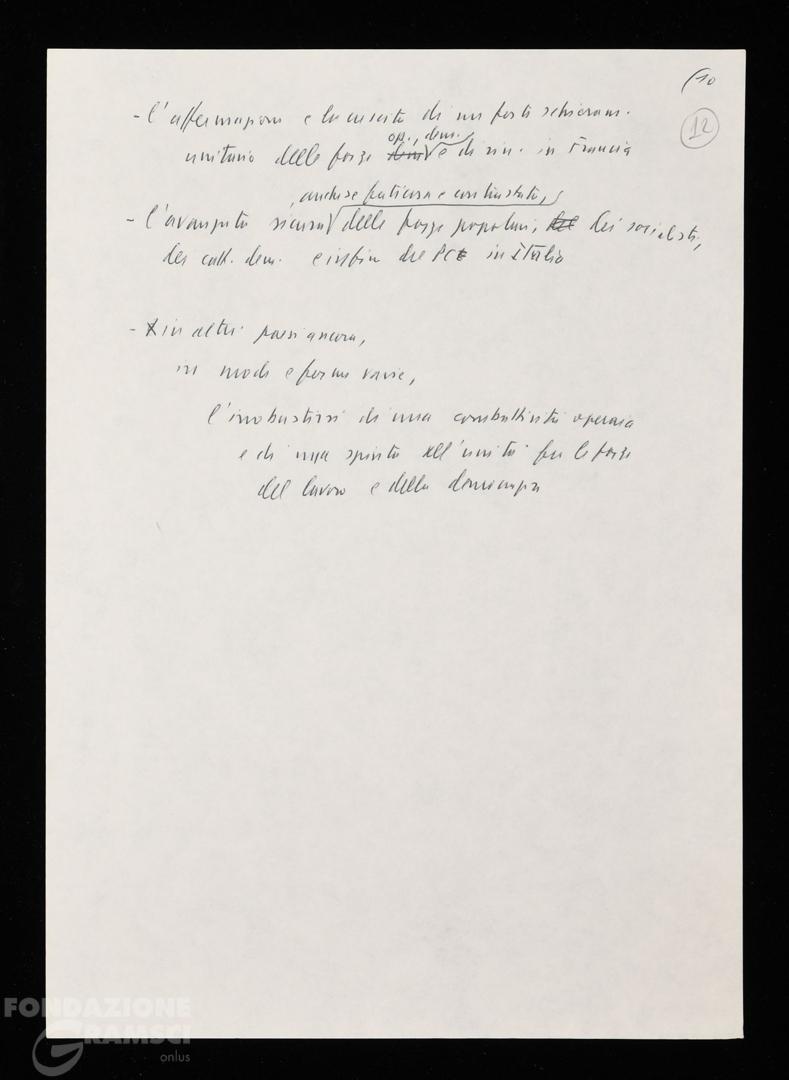 (10
12
- l'affermazione e la crescita di un forte schieram.
op., dem.
unitario delle forze dem e di sin. in Francia
, anche se faticosa e contrastata,
- l'avanzata sicura delle forze popolari, del dei socialisti,
dei catt. dem. e infine del PCI in Italia
- in altri paesi ancora,
in modi e forme varie,
l'irrobustirsi di una combattività operaia
e di una spinta all'unità fra le forze
del lavoro e della democrazia
FONDAZIONE
GRAMSCI
onlus